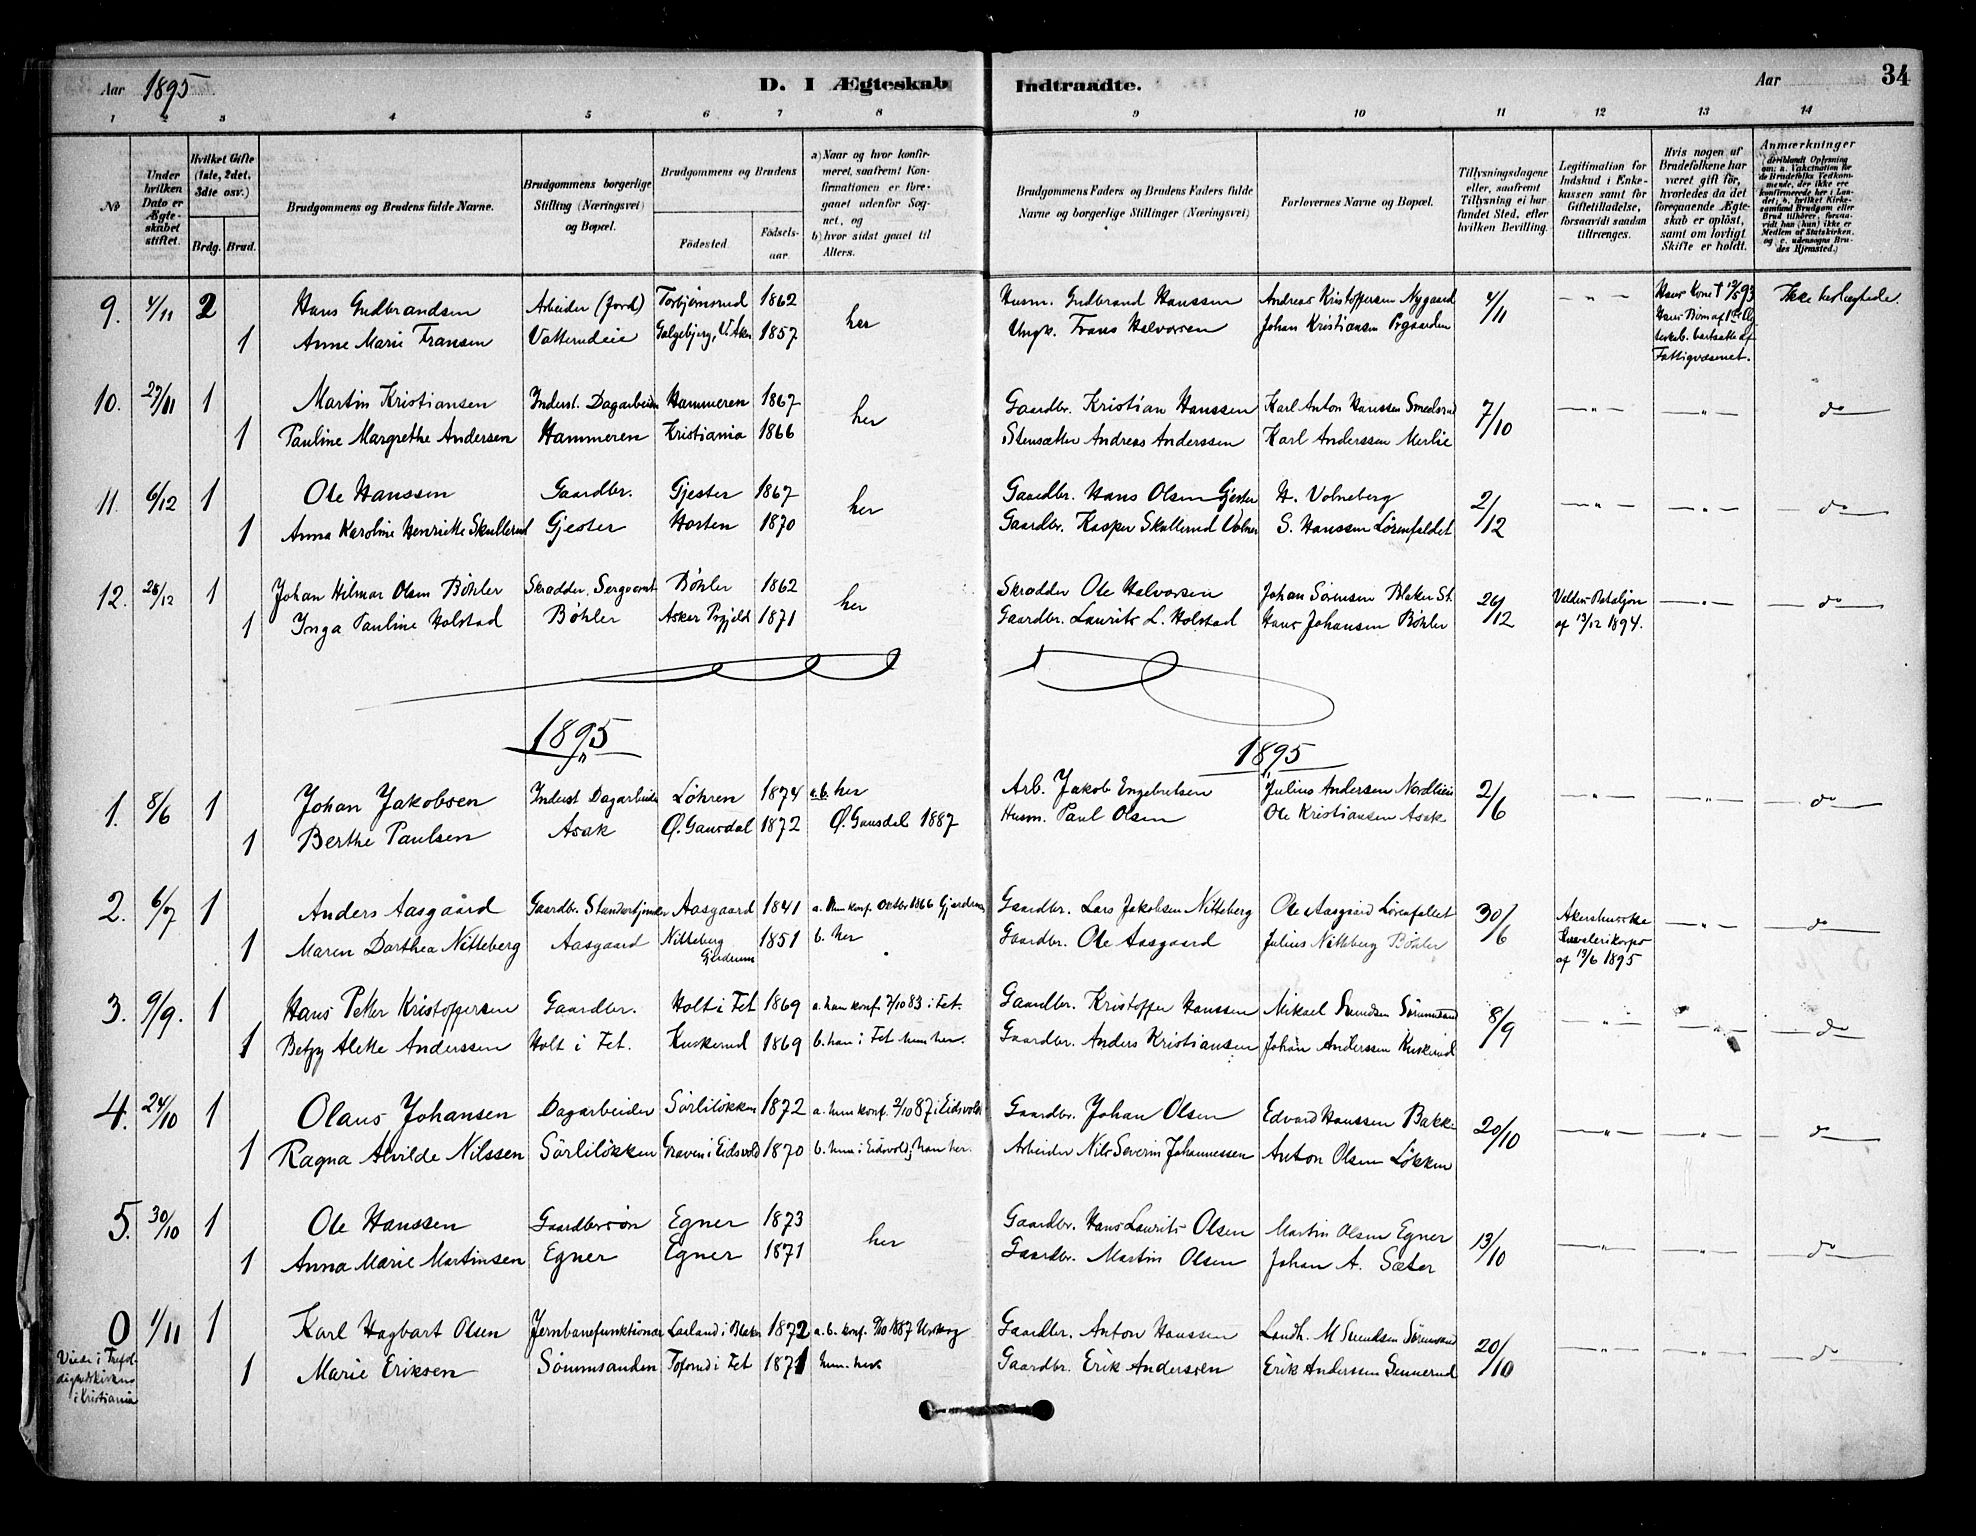 Aar 1895
D. I Ægteskab Indtraadte.
Aar 34
1 2 3 4 5 6 7 8 9 10 11 12 13 14
No
Under hvilken Dato er Ægteskabet stiftet.
Hvilket Gifte (1ste, 2det, 3die osv.)
Brdg. Brud.
Brudgommens og Brudens fulde Navne.
Brudgommens borgerlige Stilling (Næringsvei) og Bopæl.
Brudgommens og Brudens
Födested. Födselsaar.
a) Naar og hvor konfirmeret, saafremt Konfirmationen er foregaaet udenfor Sognet, og
b) hvor sidst gaaet til Alters.
Brudgommens Faders og Brudens Faders fulde Navne og borgerlige Stillinger (Næringsvei)
Forlovernes Navne og Bopæl.
Tillysningsdagene eller, saafremt Tillysning ei har fundet Sted, efter hvilken Bevilling.
Legitimation for Indskud i Enkekassen samt for Giftetilladelse, forsaavidt saadan tiltrænges.
Hvis nogen af Brudefolkene har været gift før, hvorledes da det foregaaende Ægteskab er oplöst, samt om lovligt Skifte er holdt.
Anmærkninger
9. 4/11 2 Hans Gudbrandsen Arbeider (Jord) Torbjørnsrud 1862 her Husm. Gudbrand Hanssen Andreas Kristoffersen Nygaard 4/11 – " – Hans Kone † 12/5 93 Ikke beslægtede.
1 Anne Marie Fransen Vatterudeie Galgebjerg, V. Aker 1857 Ungk. Frans Halvorsen Johan Kristiansen
Fattigvæsenet.
10. 27/11 1 Martin Kristiansen Inderst. Dagarbeider Hammeren 1867 her Gaardbr. Kristian Hanssen Karl Anton Hanssen Smedsrud 7/10 – " – – " – do
1 Pauline Margrethe Andersen Hammeren Kristiania 1866 Stensætter Andreas Anderssen Karl Anderssen Merlie
11. 6/12 1 Ole Hanssen Gaardbr. Gjester 1867 her Gaardbr. Hans Olsen Gjester H. Volneberg 2/12 – " – – " – do
1 Anna Karoline Henriette Skullerud Gjester Horten 1870 Gaardbr. Kasper Skullerud S. Hanssen Lørenfaldet
12. 28/12 1 Johan Hilmar Olsen Bøhler Skrædder, Sergeant Bøhler 1862 her Skrædder Ole Halvorsen Johan Sørensen Blaker St. 26/12 Velders Bataljon – " – do
1 Inga Pauline Holstad Bøhler Asker 1871 Gaardbr. Laurits L. Holstad Hans Johansen Bøhler af 13/12 1894.
1895 1895
1. 8/6 1 Johan Jakobsen Inderst Dagarbeider Løhren 1874 a.b. her Arb. Jakob Engebretsen Julius Andersen Nordlien 2/6 – " – – " – do
1 Berthe Paulsen Asak Ø. Gausdal 1872 Ø. Gausdal 1887 Husm. Paul Olsen Ole Kristiansen Asak
2. 6/7 1 Anders Aasgaard Gaardbr. Standartjunker Aasgaard 1841 a. Hun konf. Oktbr 1866 Gjerdrum Gaardbr. Lars Jakobsen Nitteberg Ole Aasgaard Lørenfaldet 30/6 Akershusiske – " – do
1 Maren Dorthea Nitteberg Aasgaard Nitteberg Gjerdrum 1851 b. her Gaardbr. Ole Aasgaard Julius Nitteberg Bøhler Kavallerikorps af 13/6 1895
3. 9/9. 1 Hans Petter Kristoffersen Gaardbr. Holt i Fet 1869 a. han konf. 7/10 83 i Fet. Gaardbr. Kristoffer Hanssen Mikael Svendsen Sørumsand 8/9 – " – – " – do
1 Betzy Alette Anderssen Holt i Fet. Kuskerud 1869 b. han i Fet hun her. Gaardbr. Anders Kristiansen Johan Anderssen Kuskerud
4. 24/10 1 Olaus Johansen Dagarbeider Sørliløkken 1872 a. hun konf. 2/10 87 i Eidsvold Gaardbr. Johan Olsen Edvard Hanssen Bakke 20/10 – " – – " – do
1 Ragna Alvilde Nilssen Sørliløkken Graven i Eidsvold 1870 b. hun i Eidsvold, han her. Arbeider Nils Severin Johannessen Anton Olsen Løkken
5. 30/10 1 Ole Hanssen Gaardbrsøn Egner 1873 her Gaardbr. Hans Laurits Olsen Martin Olsen Egner 13/10 – " – – " – do
1 Anna Marie Martinsen Egner Egner 1871 Gaardbr. Martin Olsen Johan A. Sæter
0 1/11 1 Karl Hagbart Olsen Jernbanefunktionær i Blaker 1872 a.b. konf. 1887 Urskog Gaardbr. Anton Hanssen Landh. M Svendsen Sørumsand 20/10 – " – – " – do
Viede i Trefoldighedskirken i Kristiania 1 Marie Eriksen Sørumsanden Toforud i Fet 1871 hun. her Gaardbr. Erik Anderssen Erik Anderssen Sennerud